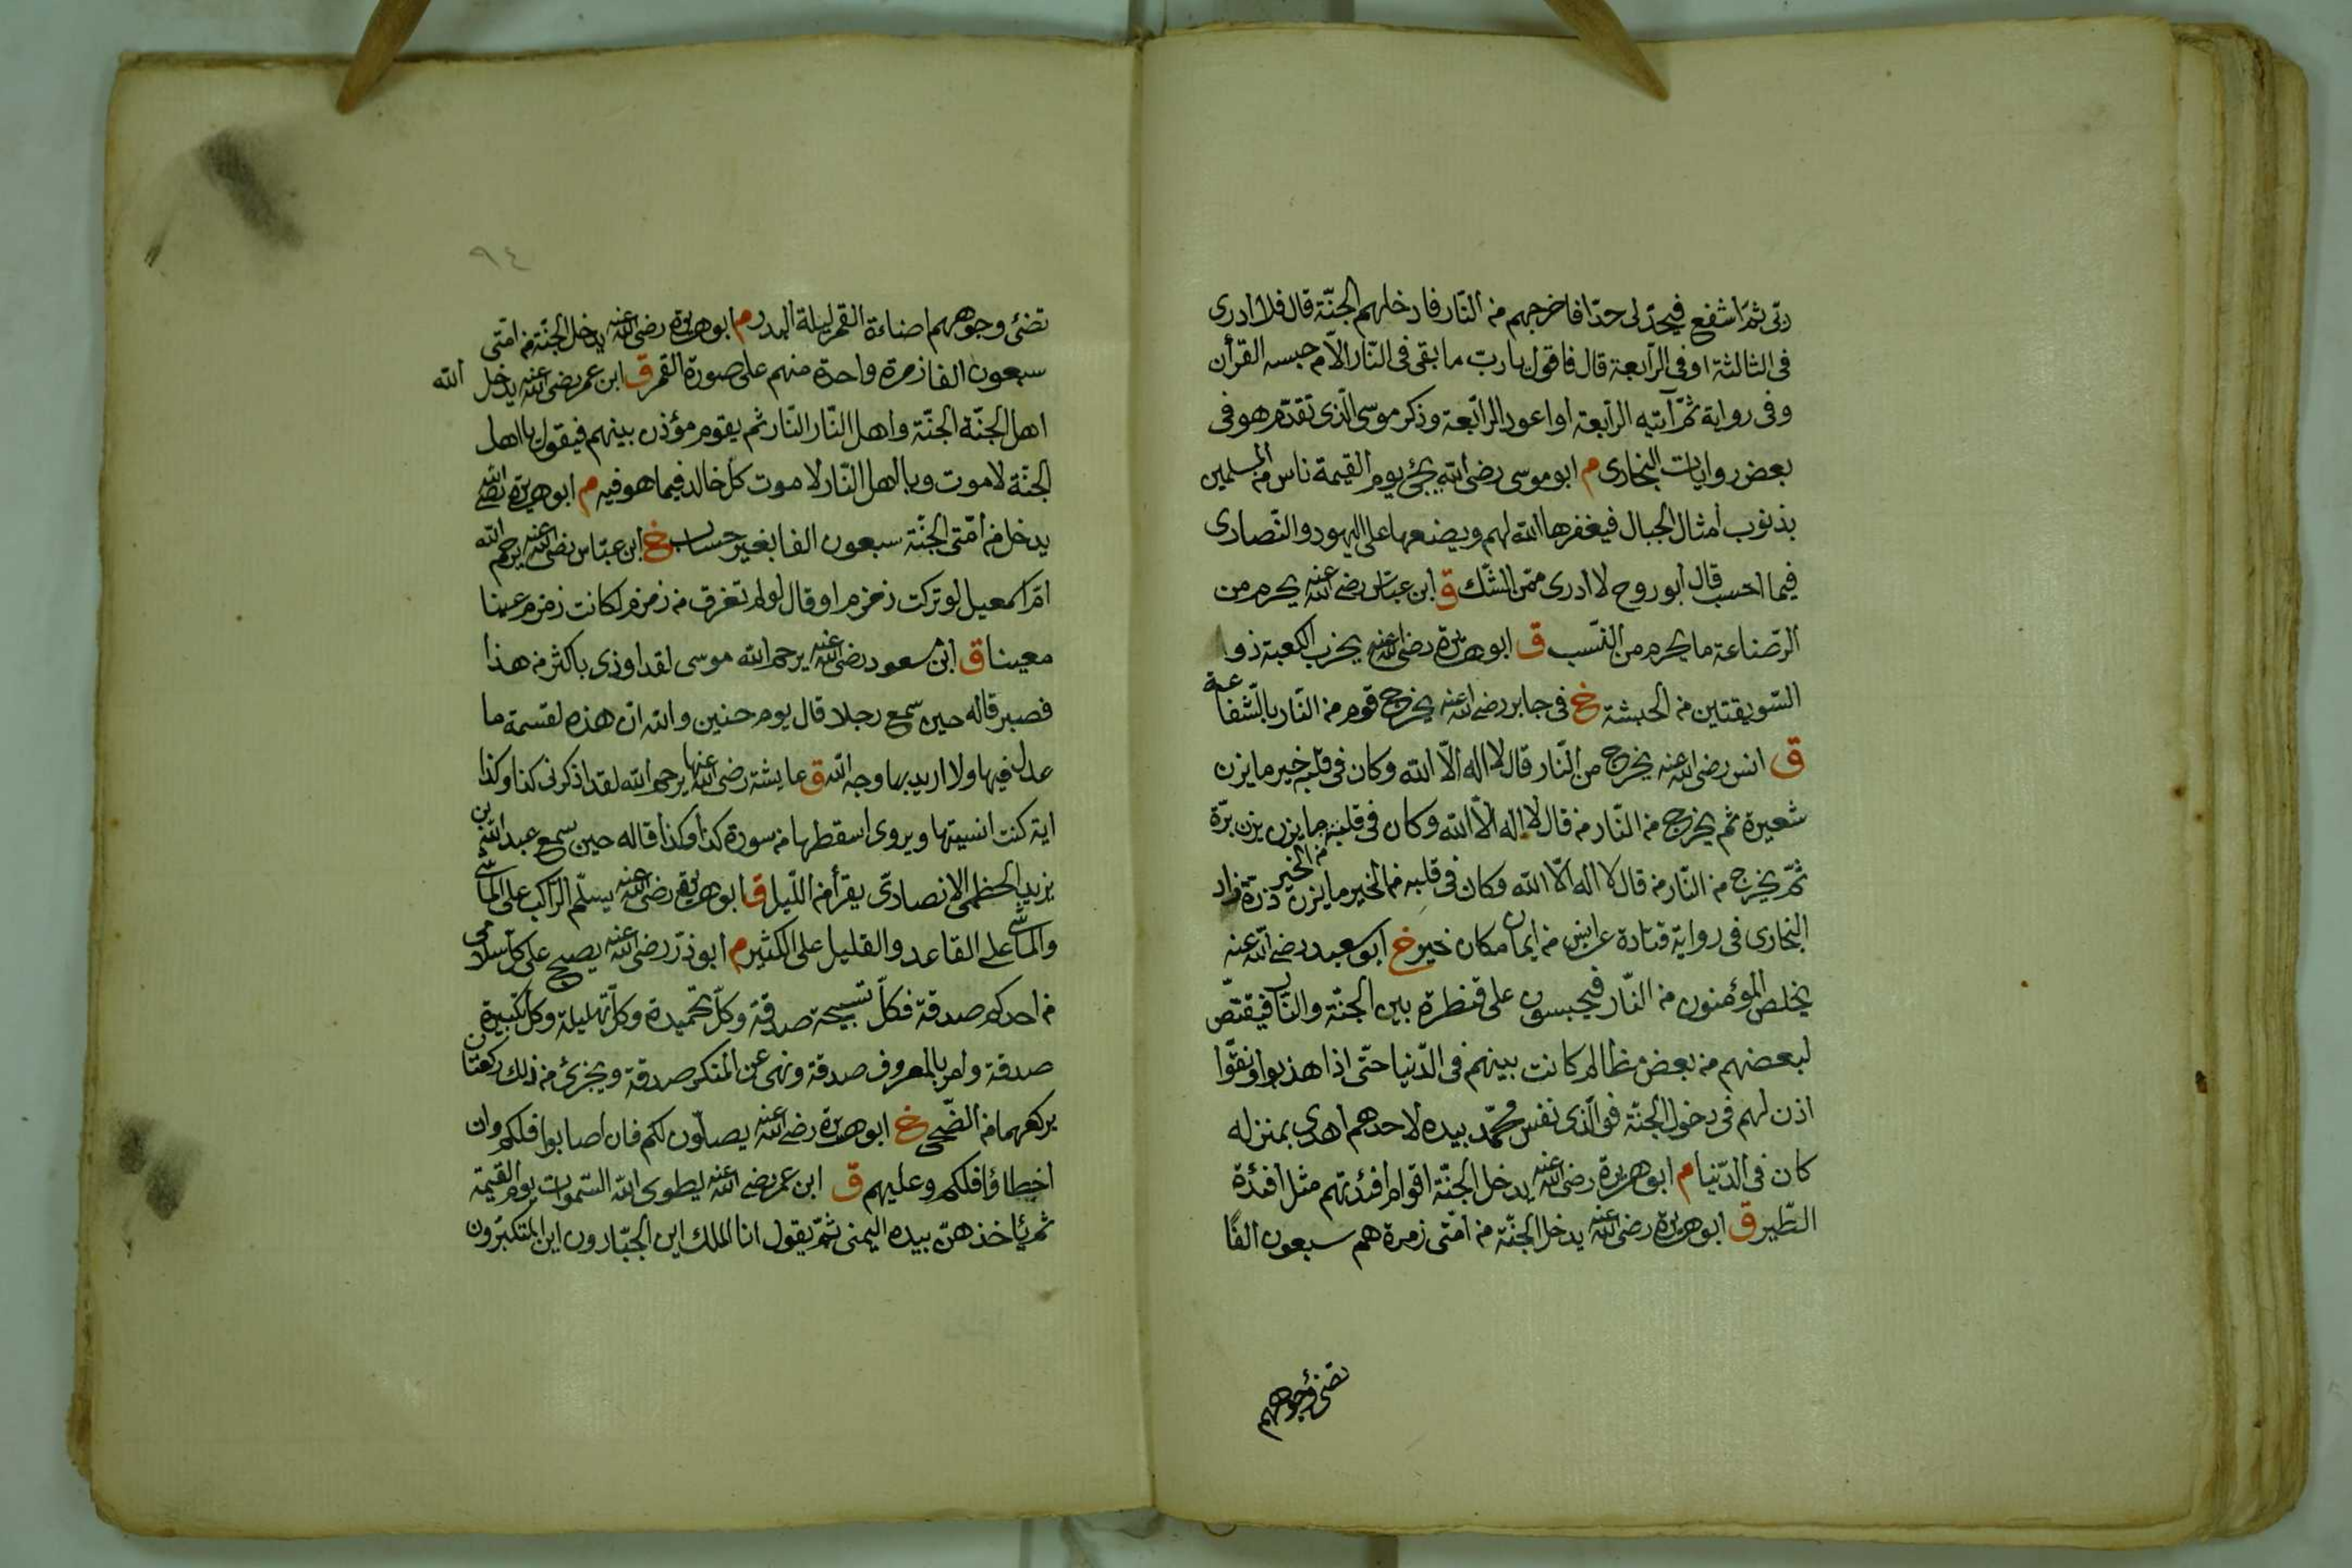 ربّى ثمّ اشفع فيحدّ لى حدّا فاخرجهم من النّار فادخلهم الجنّة قال فلا ادرى
فى الثالثة او فى الرّابعة قال فاقول يارب ما بقى فى النّار الّا من حبسه القرأن
وفى رواية ثمّ آتيه الرابعة او اعود الرّابعة وذكر موسى الّذى تقدّم هو فى
بعض روايات البخارى م ابو موسى رضى الله يجئ يوم القيمة ناس من المسلمين
بذنوب امثال الجبال فيغفرها الله لهم ويضعها على اليهود والنّصارى
فيما احسب قال ابو روح لا ادرى ممّن الشّك ق ابن عبّاس رضى الله عنه يحرم من
الرّضاعة ما يحرم من النّسب ق ابو هريرة رضى الله عنه يخرب الكعبة ذو ا
السّويقتين من الحبشة خ فى جابر رضى الله عنه يخرج قوم من النّار بالشّفاعة
ق انس رضى الله عنه يخرج من النّار قال لا اله الّا الله وكان فى قلبه خير ما يزن
شعيرة ثم يخرج من النّار من قال لا اله الّا الله وكان فى قلبه ما يزن يزن برّة
من الخير
ثمّ يخرج من النّار من قال لا اله الّا الله وكان فى قلبه من الخير ما يزن ذرّة وزاد
البخارى فى رواية قتادة عن انس من ايمان مكان خير خ ابو سعيد رضى الله عنه
يخلص المؤمنون من النّار فيحبسون على قنطرة بين الجنّة والنّار فيقتصّ
لبعضهم من بعض مظالم كانت بينهم فى الدّنيا حتّى اذا هذبوا ونقّوا
اذن لهم فى دخول الجنّة فوالّذى نفس محمّد بيده لاحدهم اهدى بمنزله
كان فى الدّنيا م ابو هريرة رضى الله عنه يدخل الجنّة اقوام افئدتهم مثل افئدة
الطّير ق ابو هريرة رضى الله عنه يدخل الجنّة من امّتى زمرة هم سبعون الفًا
تضئ وجوههم
٩٤
تضئ وجوههم اضاءة القمر ليلة البدر م ابو هريرة رضى الله عنه يدخل الجنّة من امّتى
سبعون الفا زمرة واحدة منهم على صورة القمر ق ابن عمر رضى الله عنه يدخل الله
اهل الجنّة الجنّة واهل النّار النّار ثم يقوم مؤذن بينهم فيقول يا اهل
الجنّة لا موت ويا اهل النّار لا موت كل خالد فيما هو فيه م ابو هريرة رضى الله
يدخل من امّتى الجنّة سبعون الفا بغير حساب خ ابن عبّاس رضى الله عنه يرحم الله
امّ اسمعيل لو تركت زمزم او قال لو لم تغرف من زمزم لكانت زمزم عينا
معينا ق ابن مسعود رضى الله عنه يرحم الله موسى لقد اوذى باكثر من هذا
فصبر قاله حين سمع رجلا قال يوم حنين والله ان هذه لقسمة ما
عدل فيها ولا اريد بها وجه الله ق عايشة رضى الله عنها يرحم الله لقد اذكرنى كذا وكذا
اية كنت انسيتها ويروى اسقطها من سورة كذا وكذا قاله حين سمع عبد الله بن
يزيد الخطمى الانصارى يقرأ من اللّيل ق ابو هريرة رضى الله عنه يسلّم الرّاكب على الماشى
والماشى على القاعد والقليل على الكثير م ابو ذرّ رضى الله عنه يصبح على كل سلامى
من احدكم صدقة فكلّ تسبيحة صدقة وكلّ تحميدة وكلّ تهليلة وكلّ تكبيرة
صدقة وامر بالمعروف صدقة ونهى عن المنكر صدقة ويجزئ من ذلك ركعتان
يركعهما من الضّحى خ ابو هريرة رضى الله عنه يصلّون لكم فان اصابوا فلكم وان
اخطاؤا فلكم وعليهم ق ابن عمر رضى الله عنه يطوى الله السّموات يوم القيمة
ثم ياخذهنّ بيده اليمنى ثمّ يقول انا الملك اين الجبّارون اين المتكبّرون